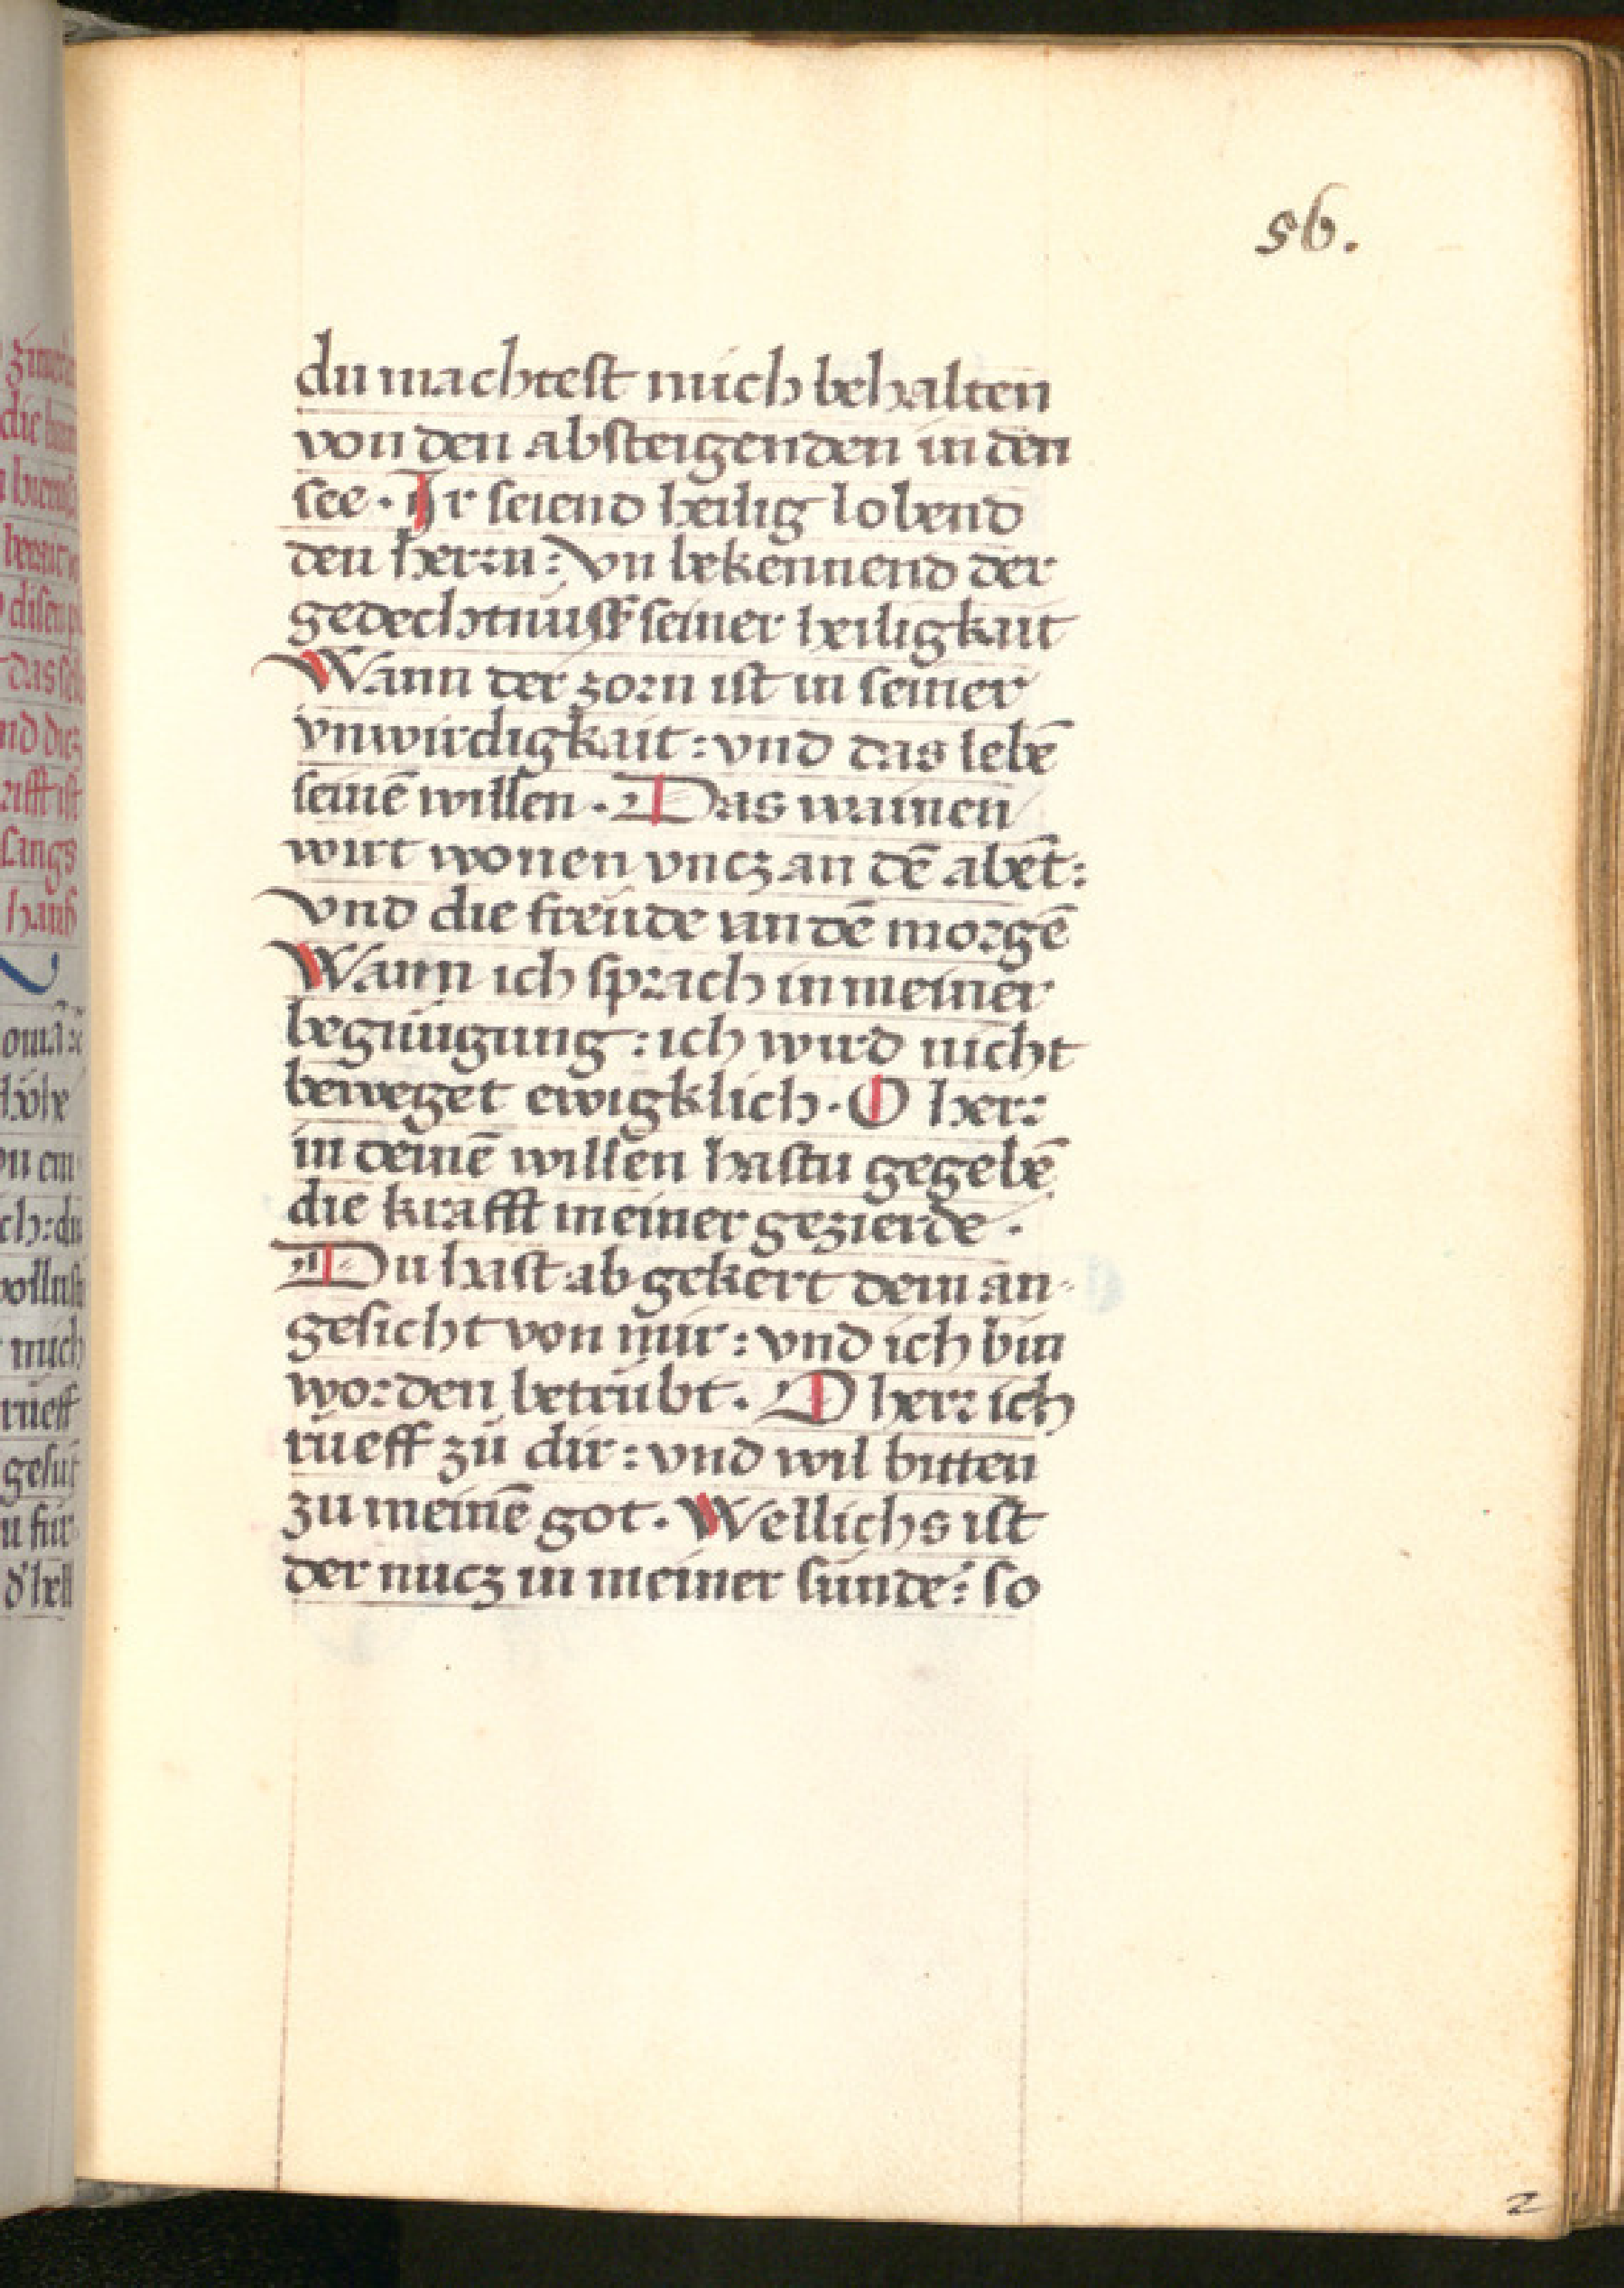 56.
du machtest mich behalten
von den absteigenden in den
see. Ir seiend heilig lobend
den herrn: vn bekennend der
gedechtnuss seiner heiligkait
Wann der zorn ist in seiner
vnwirdigkait: vnd das lebē
seinē willen. Das wainen
wirt wonen vncz an dē abēt:
vnd die freude an dē morgē
Wann ich sprach in meiner
begnügung: ich wird nicht
beweget ewigklich. O herr
in deinē willen hastu gegebē
die krafft meiner gezierde.
Du hast abgekert dein an-
gesicht von mir: vnd ich bin
worden betrübt. O herr ich
rüeff zü dir: vnd wil bitten
zu meinē got. Wellichs ist
der nucz in meiner sünde: so
2